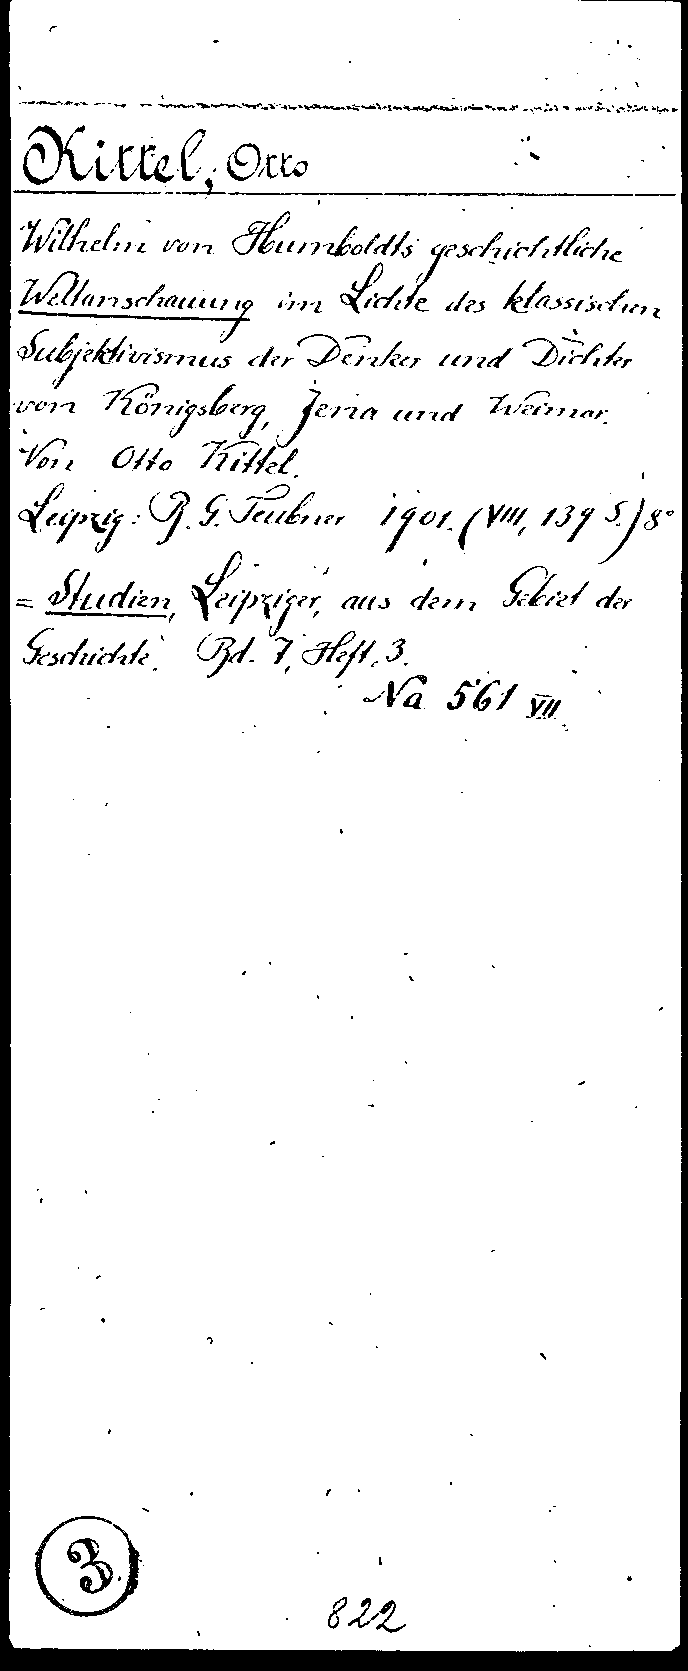 Kittel, Otto
Wilhelm von Humboldts geschichtliche
Weltanschauung im Lichte des klassischen
Subjektivismus der Denker und Dichter
von Königsberg, Jena und Weimar.
Von Otto Kittel.
Leipzig: B. G. Teubner 1901. (VIII, 139 S.) 8°
= Studien, Leipziger, aus dem Gebiet der
Geschichte. Bd. 7, Heft, 3.
Na 561 VII
3
822